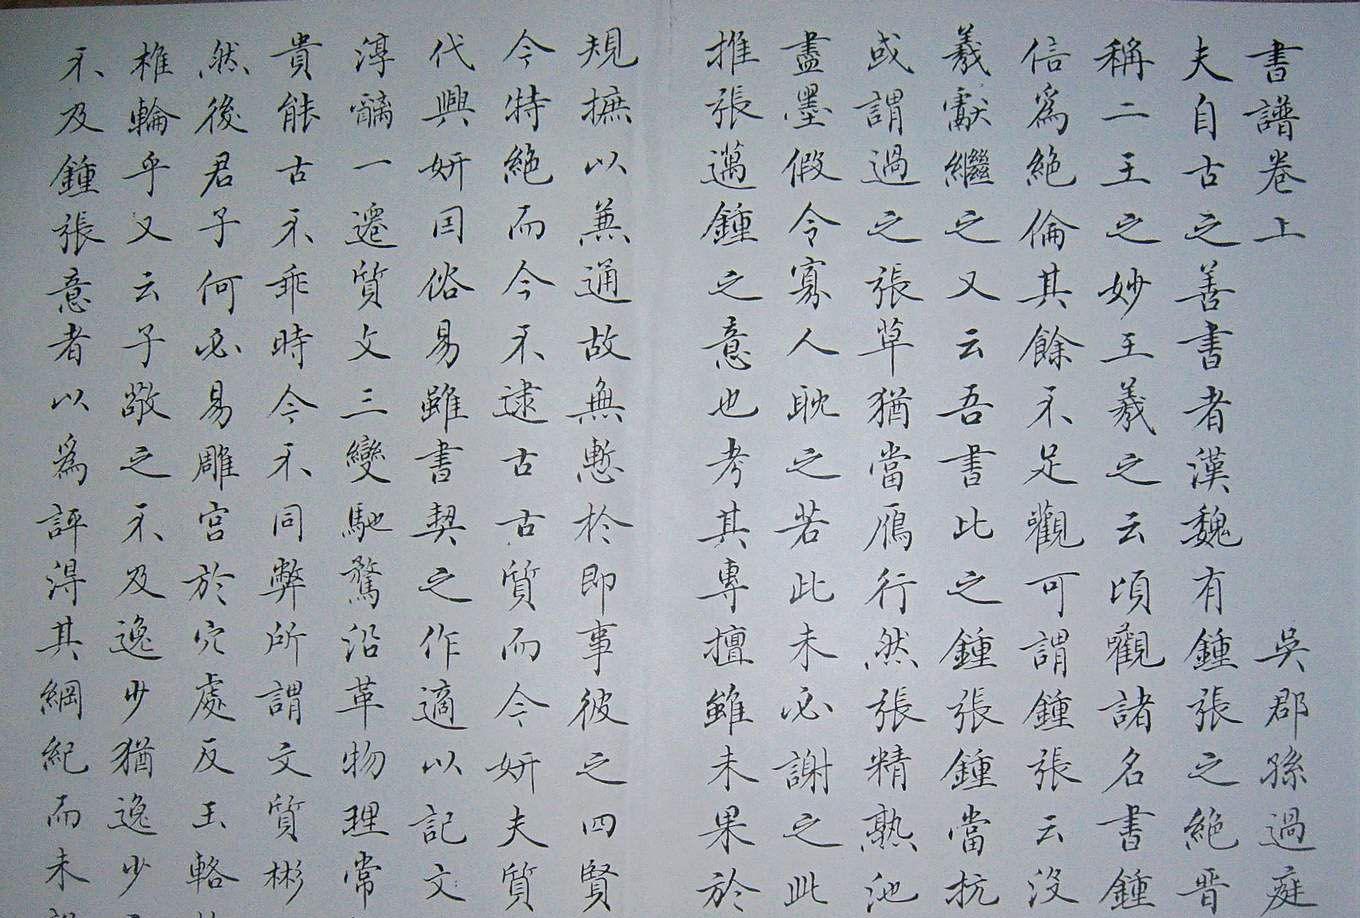 書譜卷上 吳郡孫過庭
夫自古之善書者漢魏有鍾張之絕晉
稱二王之妙王羲之云頃觀諸名書鍾
信為絕倫其餘不足觀可謂鍾張云沒
羲獻繼之又云吾書比之鍾張鍾當抗
或謂過之張草猶當鴈行然張精熟池
盡墨假令寡人耽之若此未必謝之此
推張邁鍾之意也考其專擅雖未果於
規摭以兼通故無慙於即事彼之四賢
今特絕而今不逮古古質而今妍夫質
代興妍因俗易雖書契之作適以記文
淳醨一遷質文三變馳騖沿革物理常
貴能古不乖時今不同弊所謂文質彬
然後君子何必易雕宮於穴處反玉輅
椎輪乎又云子敬之不及逸少猶逸少
不及鍾張意者以為評得其綱紀而未